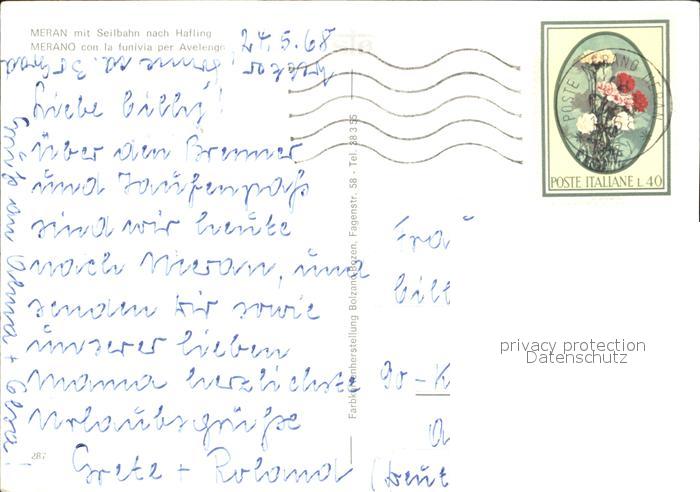 MERAN mit Seilbahn nach Hafling
MERANO con la funivia per Avelengo
24.5.68
Liebe Billy!
Über den Brenner
und Jaufenpaß
sind wir heute
nach Meran, und
senden Dir sowie
unserer lieben
Mama herzlichste
Urlaubsgrüße
Grete + Roland
Grüße an
287
Farbkartenherstellung Bolzano-Bozen, Fagenstr. 58 - Tel. 38355
POSTE ITALIANE L. 40
Frau
Bill
90-K
A
(Deut
privacy protection
Datenschutz